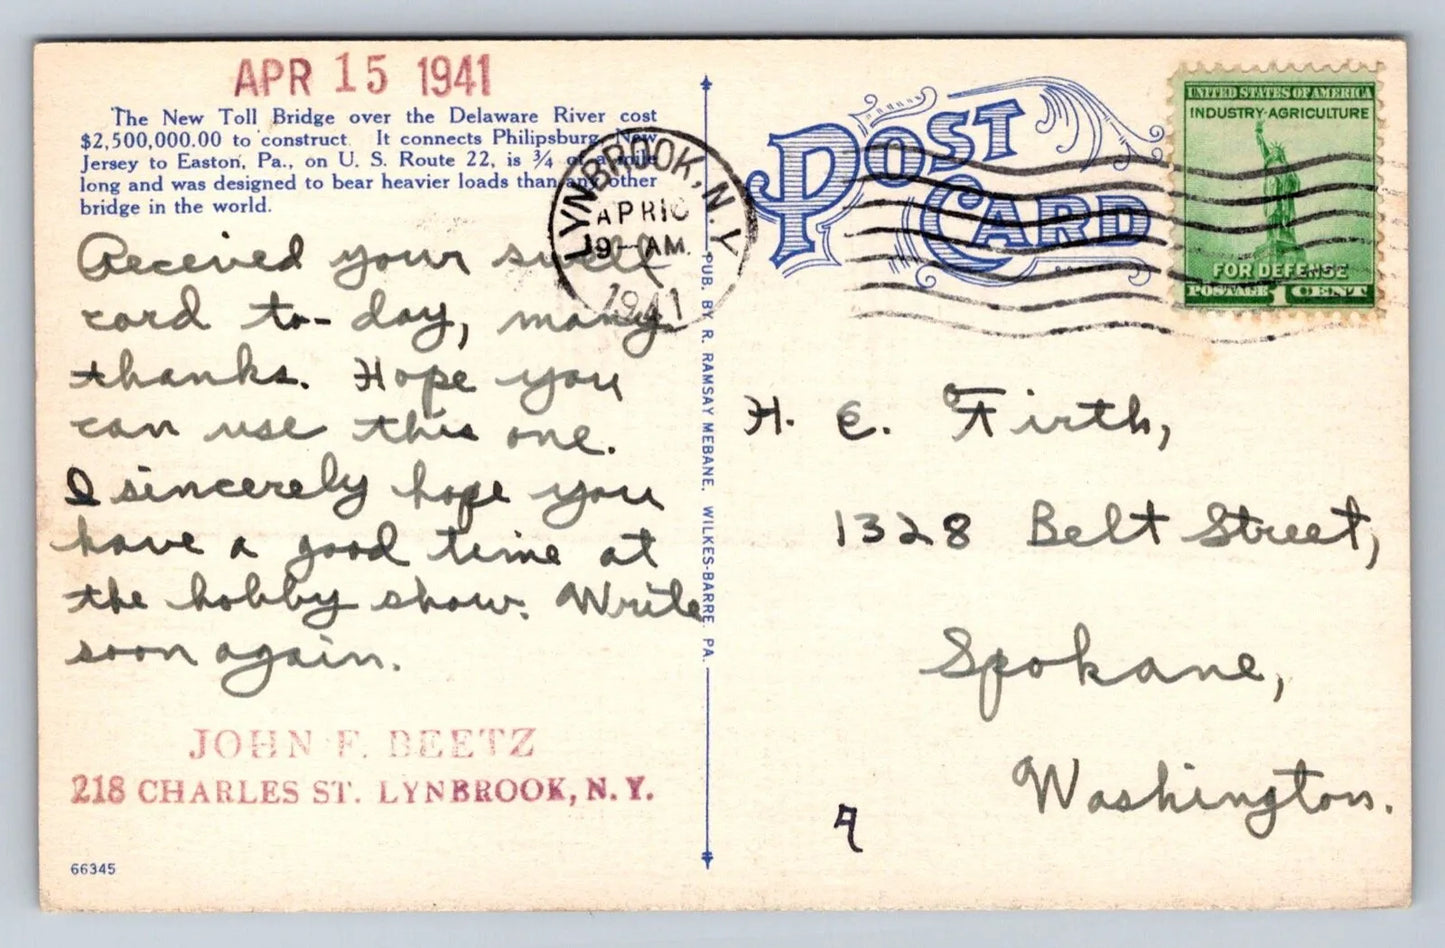 APR 15 1941
The New Toll Bridge over the Delaware River cost
$2,500,000.00 to construct. It connects Philipsburg, New
Jersey to Easton, Pa., on U. S. Route 22, is ¾ of a mile
long and was designed to bear heavier loads than any other
bridge in the world.
Received your swell
card to-day, many
thanks. Hope you
can use this one.
I sincerely hope you
have a good time at
the hobby show. Write
soon again.
JOHN F. BEETZ
218 CHARLES ST. LYNBROOK, N. Y.
66345
LYNBROOK, N. Y.
APR 16
9-AM.
1941
PUB. BY R. RAMSAY MEBANE, WILKES-BARRE, PA.
POST
CARD
UNITED STATES OF AMERICA
INDUSTRY-AGRICULTURE
FOR DEFENSE
POSTAGE 1 CENT
H. E. Firth,
1328 Belt Street,
Spokane,
Washington.